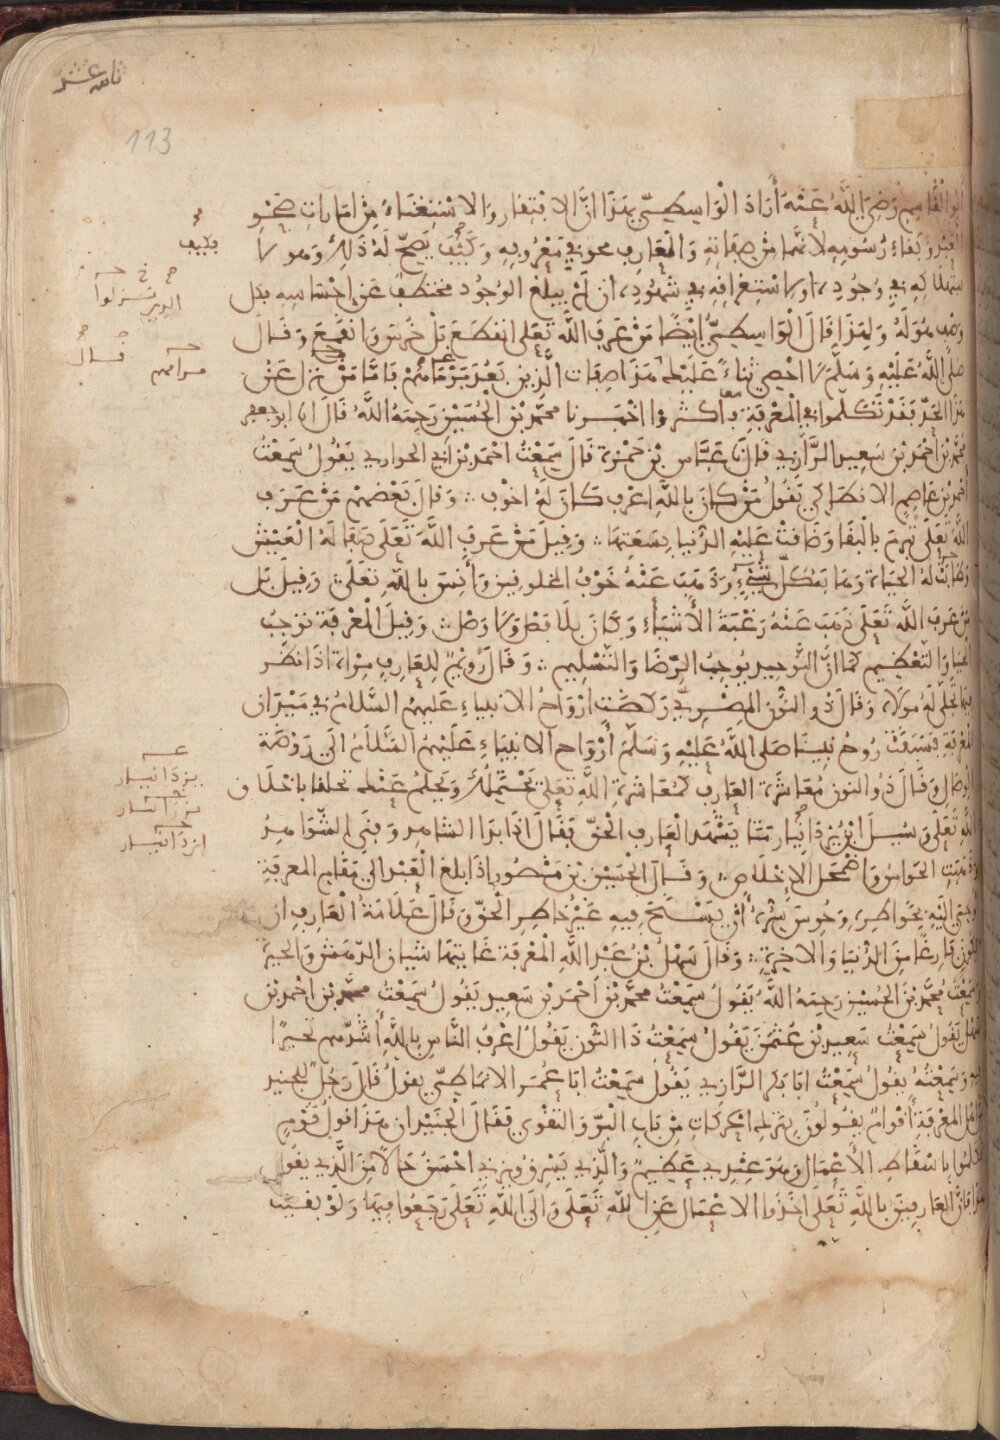 ثامنة عشر
113
أبو الْقَاسِمِ رَضِيَ اللَّهُ عَنْهُ أَرَادَ الْوَاسِطِيّ بِهَذَا أَنَّ الافْتِقَار وَالاسْتِغْنَاءَ مِنْ أمَارَاتِ صَحْوِ
الْعَبْدِ وَبَقَاءِ رُسُومِهِ لأَنَّهُمَا مِنْ صِفَاتِهِ وَالْعَارِف محو فِي مَعْرُوفِهِ وَكَيْفَ يَصِحّ لَهُ ذَلِكَ وَهو لا
فكيف
سْتِهْلاكِهِ فِي وُجُودِهِ أوْ لاسْتِغْرَاقِهِ فِي شُهُودِهِ، انْ لَمْ يَبْلُغ الوُجُود مختطف عَنْ إحْسَاسِهِ بكل
وَصْفٍ هُوَ لَهُ وَلِهَذَا قَالَ الْوَاسِطِيُّ أيْضًا مَنْ عَرَفَ اللَّهَ تَعَلَى انقطَعَ بَلْ خَرِسَ وَانْقَمَعَ وَقَالَ
صَلَّى اللَّهُ عَلَيْهِ وَسَلَّمَ لا احْصِي ثَنَاءً عَلَيْكَ هَذِهِ صِفَات الَّذِينَ بَعُدَ مَرْمَاهُمْ فَامَّا مَنْ نزل عَنْ
مرامهم
قــال
الذين نــزلوا
هَذَا الحَدِّ فَقَدْ تَكَلَّموا فِي الْمَعْرِفَةِ فأكثروا اخْبَــرنا محمَّد بْن الْحُسَيْن رَحِمَهُ اللَّهُ قَالَ انا ابو جعفر
مُحَمَّد بْن أَحْمَد بْن سَعِيد الرَّازِي قالَ نا عَبَّاس بْن حَمْزة قَالَ سَمِعْتُ احْمَد بْن أبِي الحواري يَقُولُ سَمِعْتُ
أَحْمَدَ بْن عَاصِم الانطَاكي يَقُولُ مَنْ كانَ باللَّهِ اعْرف كَانَ لَهُ اخْوف ۞ وَقالَ بَعْضهمْ مَنْ عَرَف
اللَّهَ تَعَلَى تبرم بالْبَقَا وَضَاقتْ عَلَيْهِ الدُّنيا بِسَعَتِهَا ۞ وَقِيلَ مَنْ عَرَفَ اللَّهَ تَعَلَى صَفَا لَهُ الْعَيْشُ
وَطَابَتْ لَهُ الحَيَاة وَهَابَهُ كلّ شَيْءٍ وَذَهَبَ عَنْهُ خَوْفُ المخلوقين وَأنِسَ باللَّهِ تَعَلَى ۞ وَقِيلَ بَل
مَنْ عَرَفَ اللَّهَ تَعَلَى ذهَبَ عَنْهُ رَغْبَةُ الأَشْيَاءِ وَكانَ بِلَا فَصْل وَلا وَصْل ۞ وَقِيلَ الْمَعْرِفَة توجبُ
الحَيَا وَالتَّعْظِيم كما أنَّ التَّوحيد يُوجِبُ الرِّضَا وَالتَّسْلِيم ۞ وَقَالَ رُوَيْمٌ لِلعَارِفِ مِرْاة اذَا نظَــر
فِيهَا تَجَلَّى لَهُ مَوْلاه وَقَالَ ذُو النُّونِ الْمِصْــرِيّ رَكَضَتْ ارْوَاحُ الانبياءِ عَلَيهِمُ السَّلامُ فِي مَيْدَان
الْمَعْرِفَةِ فَسَبَقَتْ رُوحُ نَبِيِّنَا صَلَى اللَّهُ عَلَيْهِ وَسَلَّمَ أَرْوَاح الانْبِيَاءِ عَلَيْهِمُ السَّلاَمُ الَى رَوْضَة
الْوِصَال وَقَالَ ذُو النون مُعَاشَرَة العَارِف كمُعَاشَرَةِ اللَّهِ تَعَلَى يَحْتَمِلُكَ وَيَحلُمُ عَنْكَ تخلقا باخلَاق
اللَّهِ تَعَلَى وَسُيِلَ ابْنُ يَزْدَانِيَار مَتَا يَشْهَد الْعَارِف الْحَقّ فَقَالَ اذَا بَدَا الشاهِد وَفَنَى الشّوَاهِدُ
يزدَانيــار
يزدَانيار
ابن يزدَانيــار
وَذَهَبَتِ الحَوَاسُ وَاضْمَحَلَّ الإخْلَاص ۞ وَقــالَ الْحُسَيْن بْن مَنْصُور إذَا بلغ الْعَبْد الَى مَقَام المعرفَةِ
أوحِيَ إلَيْهِ بِخَواطِرِهِ وَحُرِسَ سِرُّهُ أنْ يَسْنَحَ فِيهِ غَيْرُ خاطِر الْحَقّ وَقَالَ عَلاَمَةُ الْعَارِفِ ان
يَكُون فَارِغًا مِنَ الدُّنيَا وَالاخِرَةِ ۞ وَقَالَ سَهْلُ بْنُ عَبْدِ اللَّهِ الْمَعْرِفَة غَايتهَا شَيئان الدّهَشُ وَالحيرة
سَمِعْتُ مُحَمَّدَ بْنَ الحُسَيْن رَحِمَهُ اللَّهُ يَقُولُ سَمِعْتُ محمَّد بْن أحْمَد بْن سَعِيد يَقُولُ سَمِعْتُ محمَّد بْن احْمَد بْن
سَهْل يَقُولُ سَمِعْتُ سَعِيد بْن عُثْمَنَ يَقُولُ سَمِعْتُ ذَا النُّون يَقُولُ اعْرفُ النَّاسِ باللَّهِ أَشَدّهم تحيرًا
فِيهِ وَسَمِعْتُهُ يقُولُ سَمِعْتُ ابَا بَكْر الرَّازِي يَقُولُ سَمِعْتُ ابَا عُمَــر الانطَاكِيّ يقولُ قَالَ رَجُلٌ للجنيد
مِنْ اهْل الْمَعْرِفَةِ أقْوَامٌ يَقُــولُونَ بِتَركِ الْحَرَكَاتِ مِنْ بَابِ الْبِرّ وَالتقْوَى فَقَالَ الْجُنَيْدُ إن هَذَا قولُ قَوْمٍ
تَكَلَّمُوا باسْقَاطِ الأَعْمَال وَهُوَ عِنْدِي عَظِيمٌ وَالَّذِي يَسْرِقُ وَيزني احْسَنُ حَالاً مِنَ الَّذِي يقول
هَذَا فَإنَّ الْعَارِفِينَ باللَّهِ تَعَلَى اخَذُوا الاعْمَال عَنِ اللَّهِ تَعَلَى وَالَى اللَّهِ تَعَلَى رَجَعُوا فِيهَا وَلَوْ بَقِيتُ